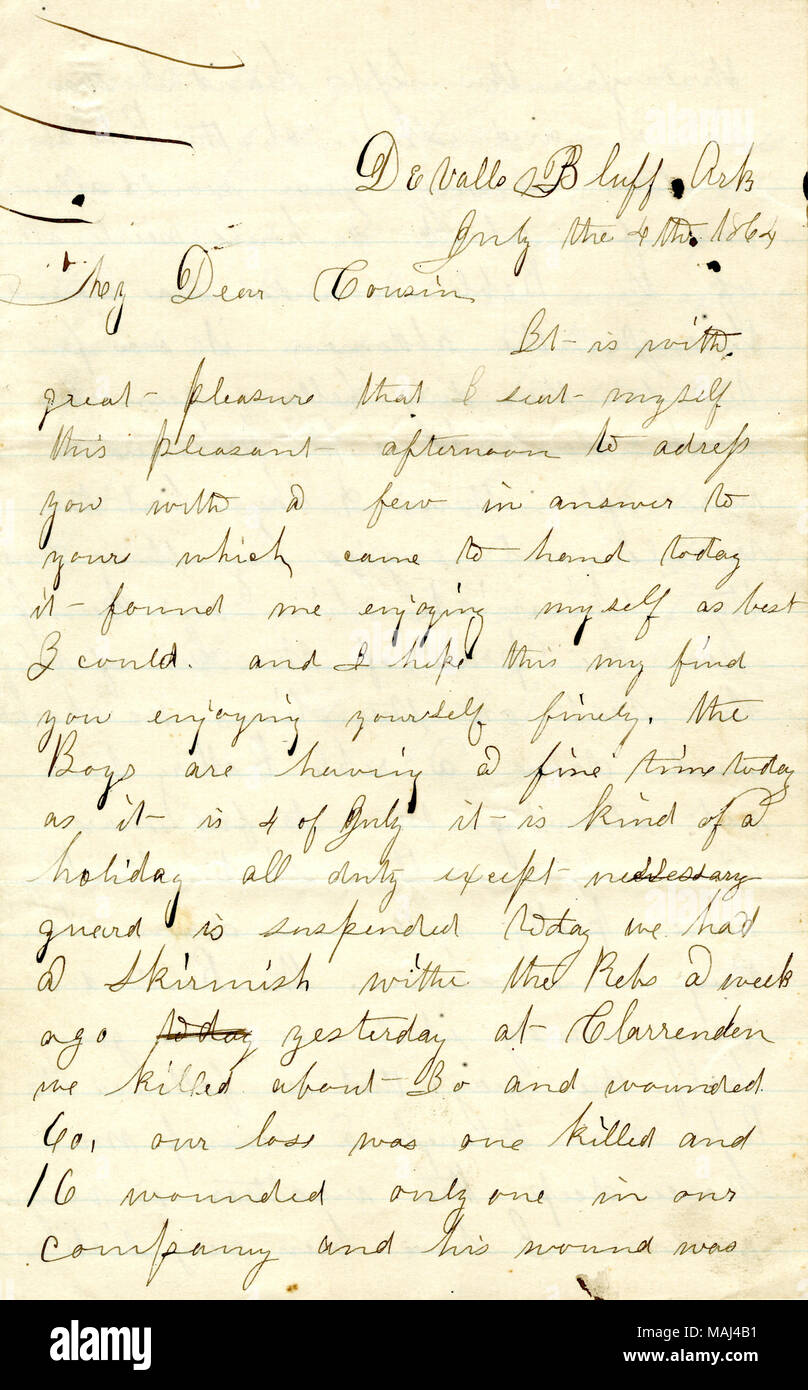 DEvalls Bluff, Ark
July the 4th. 1864
My Dear Cousin
It is with
great pleasure that I seat myself
this pleasant afternoon to adress
you with a few in answer to
yours which came to hand today
it found me enjoying myself as best
I could. and I hope this my find
you enjoying yourself finely. the
Boys are having a fine time today
as it is 4 of July it is kind of a
holiday all duty except nessessary
guard is suspended today we had
a skirmish withe the Rebs a week
ago today yesterday at Clarrenden
we killed about 30 and wounded
60, our loss was one killed and
16 wounded only one in our
company and his wound was
alamy
Image ID: MAJ4B1
www.alamy.com